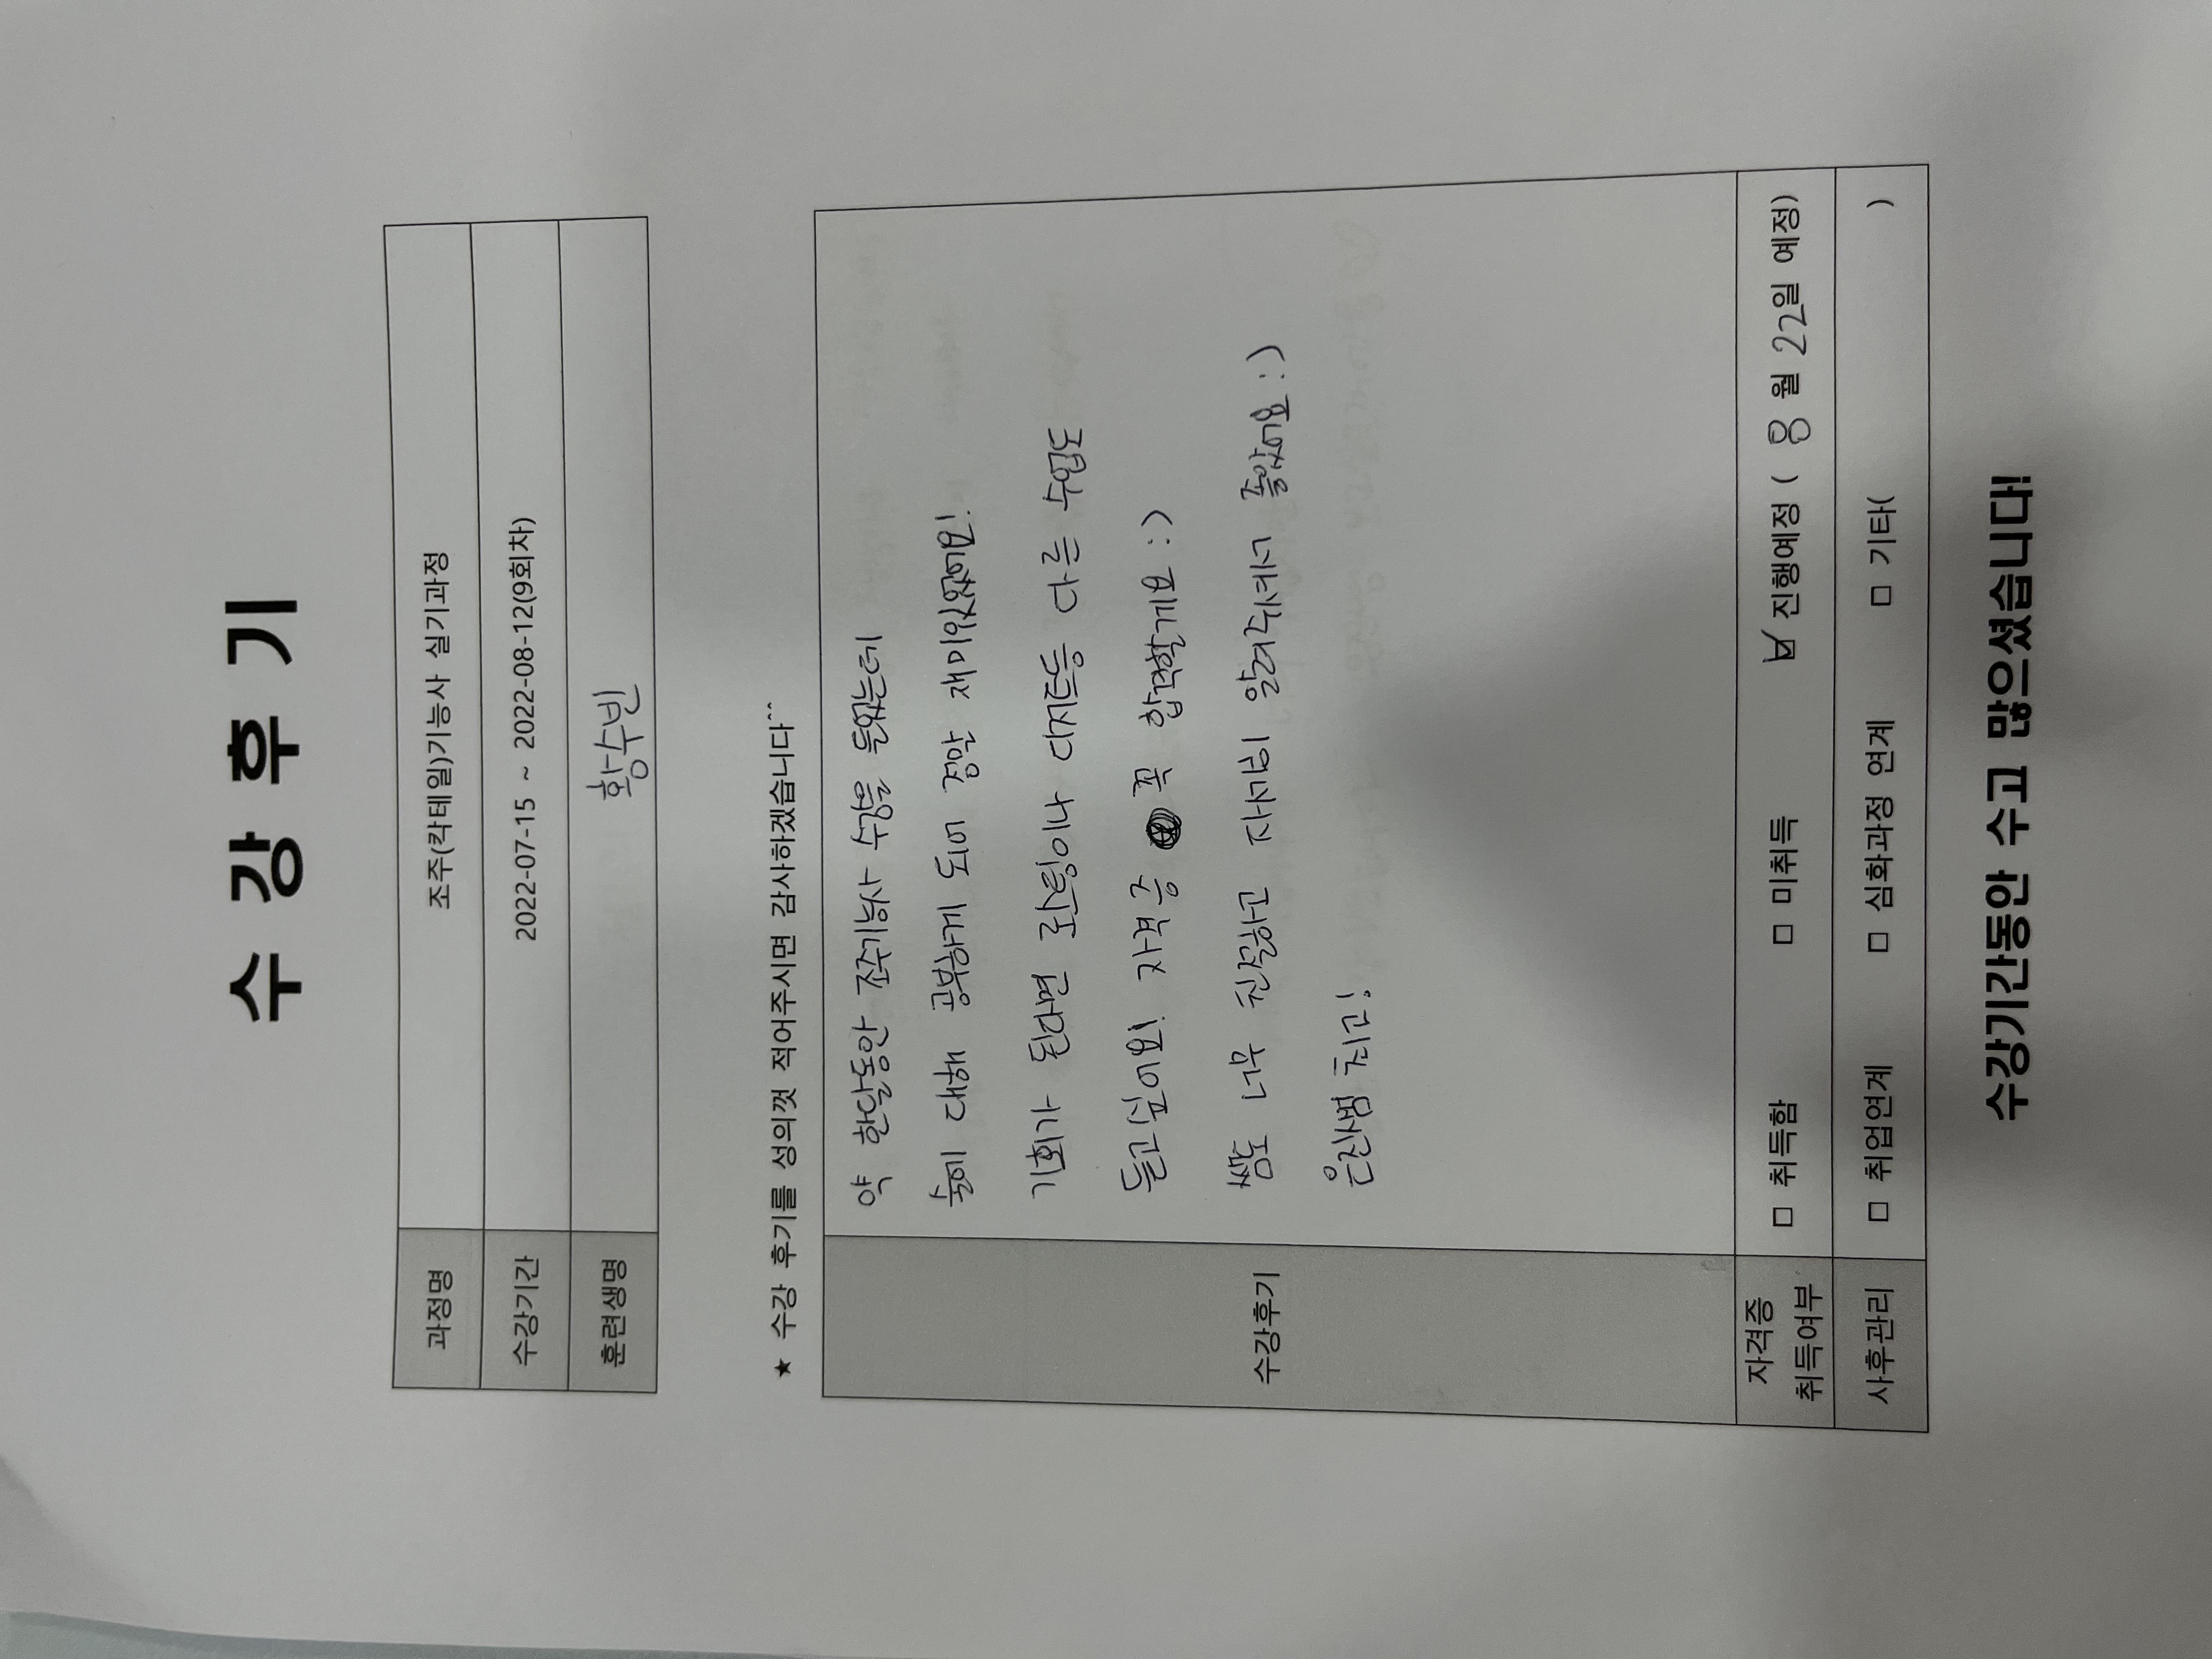 수 강 후 기
과정명 조주(칵테일)기능사 실기과정
수강기간 2022-07-15 ~ 2022-08-12(9회차)
훈련생명 황수빈
★ 수강 후기를 성의껏 적어주시면 감사하겠습니다^^
수강후기
약 한달동안 조주기능사 수강을 들었는데
술에 대해 공부하게 되어 정말 재미있었어요!
기회가 된다면 로스팅이나 디저트등 다른 수업도
듣고싶어요! 자격증 꼭 합격할게요 :)
쌤도 너무 친절하고 자세히 알려주셔서 좋았어요 :)
은진쌤 최고!
자격증 취득여부 □ 취득함 □ 미취득 ☑ 진행예정 ( 8 월 22일 예정)
사후관리 □ 취업연계 □ 심화과정 연계 □ 기타( )
수강기간동안 수고 많으셨습니다!